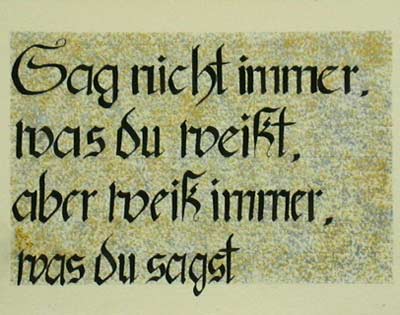 Sag nicht immer,
was du weißt,
aber weiß immer,
was du sagst